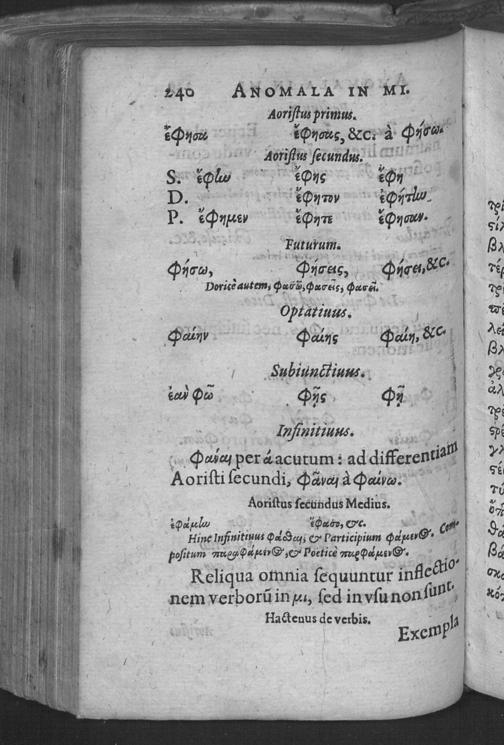 240 ANOMALA IN MI.
Aoristus primus.
ἔφησα ἔφησας, &c. à φήσω.
Aoristus secundus.
S. ἔφlω ἔφης ἔφη
D. ἔφητον ἐφήτlω
P. ἔφημεν ἔφητε ἔφησαν.
Futurum.
φήσω, φήσεις, φήσει, &c.
Doricè autem, φασῶ, φασεῖς, φασεῖ.
Optatiuus.
φαίην φαίης φαίη, &c.
Subiunctiuus.
ἐὰν φῶ φῇς φῇ
Infinitiuus.
φάναι per ά acutum: ad differentiam
Aoristi secundi, φᾶναι à φαίνω.
Aoristus secundus Medius.
ἐφάμlω ἔφασο, &c.
Hinc Infinitiuus φάσθαι, & Participium φάμενος. Com-
positum παραφάμενος, & Poëticè παρφάμενος.
Reliqua omnia sequuntur inflectio-
nem verborũ in μι, sed in vsu non sunt.
Hactenus de verbis.
Exempla